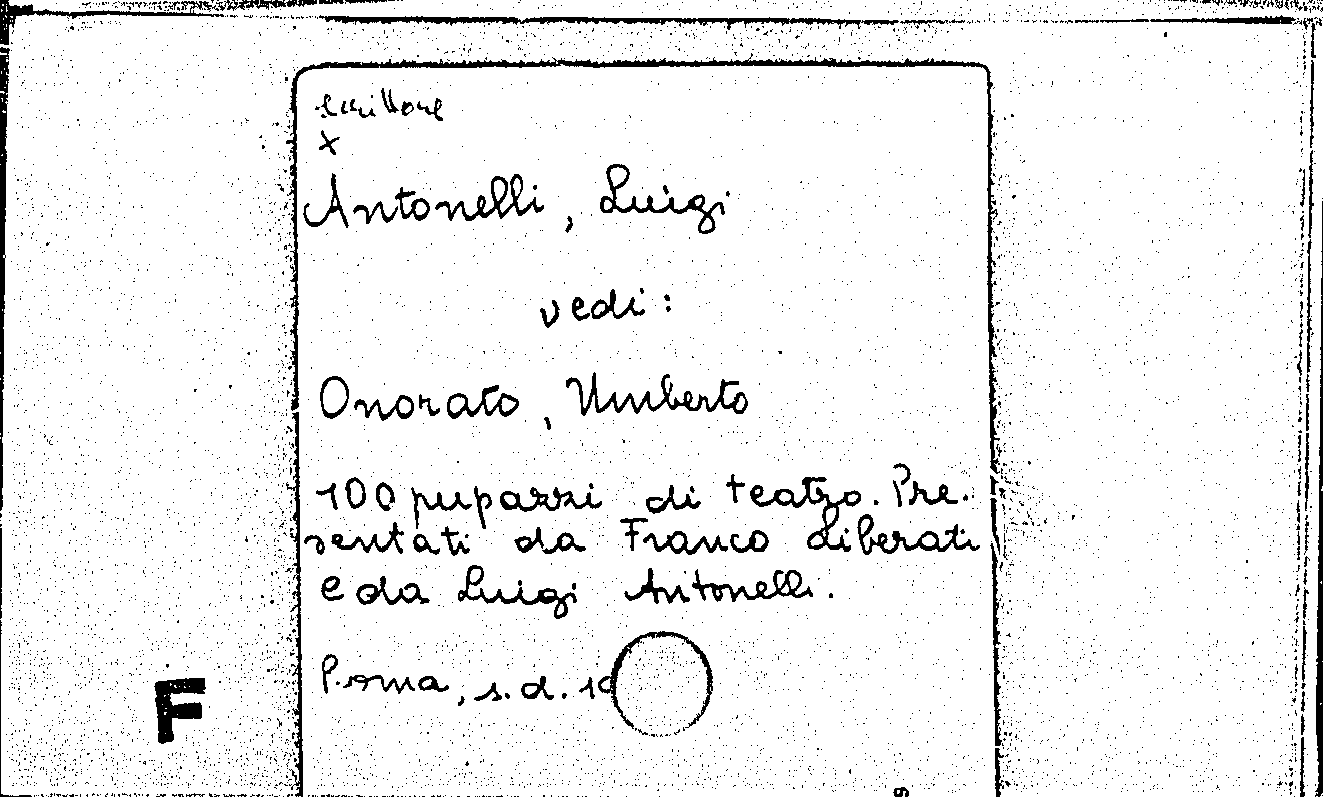 scrittore
x
Antonelli, Luigi
vedi:
Onorato, Umberto
100 pupazzi di teatro. Pre-
sentati da Franco Liberati
e da Luigi Antonelli.
Roma, s.d.
F